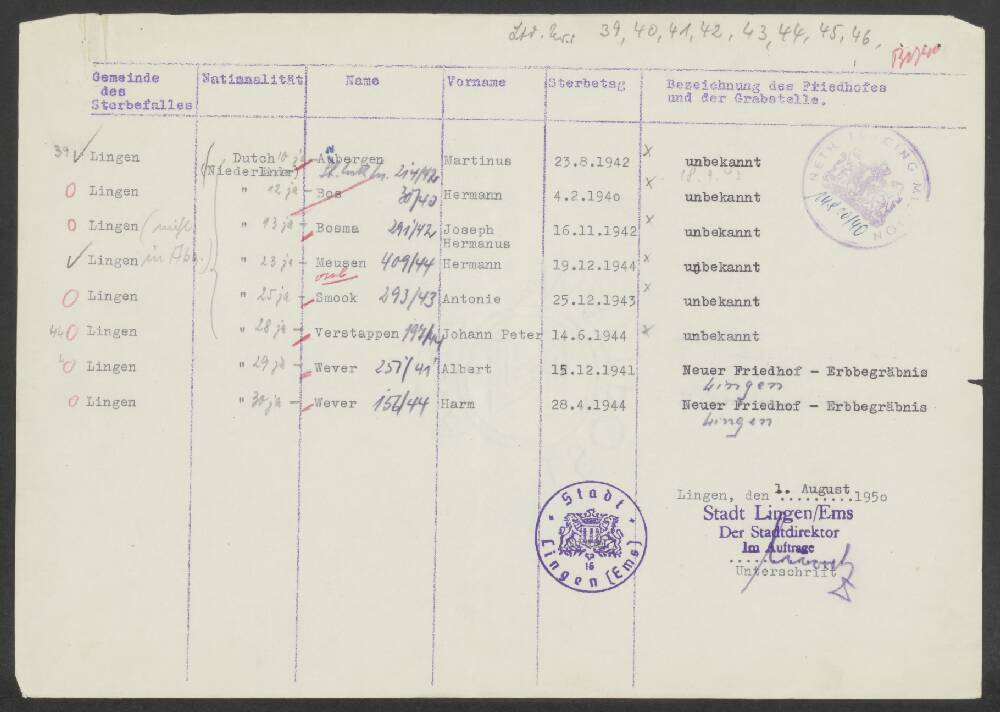 Lfd. Nrs. 39, 40, 41, 42, 43, 44, 45, 46,
Gemeinde des Sterbefalles Nationalität Name Vorname Sterbetag Bezeichnung des Friedhofes und der Grabstelle.
39 Lingen Dutch (Niederländer) 10 ja Aübergen 214/42 Martinus 23.8.1942 x unbekannt
18.9.
O Lingen " 12 ja Bos 30/40 Hermann 4.2.1940 x unbekannt
O Lingen " 13 ja Bosma 291/42 Joseph Hermanus 16.11.1942 x unbekannt
Lingen " 23 ja Meusen 409/44 Hermann 19.12.1944 x unbekannt
(nicht in
O Lingen " 25 ja Smook 293/43 Antonie 25.12.1943 x unbekannt
44 O Lingen " 28 ja Verstappen Johann Peter 14.6.1944 x unbekannt
O Lingen " 29 ja Wever 257/41 Albert 15.12.1941 Neuer Friedhof - Erbbegräbnis
Lingen
O Lingen " 30 ja Wever 156/44 Harm 28.4.1944 Neuer Friedhof - Erbbegräbnis
Lingen
Lingen, den 1. August 1950
Stadt Lingen/Ems
Der Stadtdirektor
Im Auftrage
Unterschrift
Stadt Lingen (Ems)
16